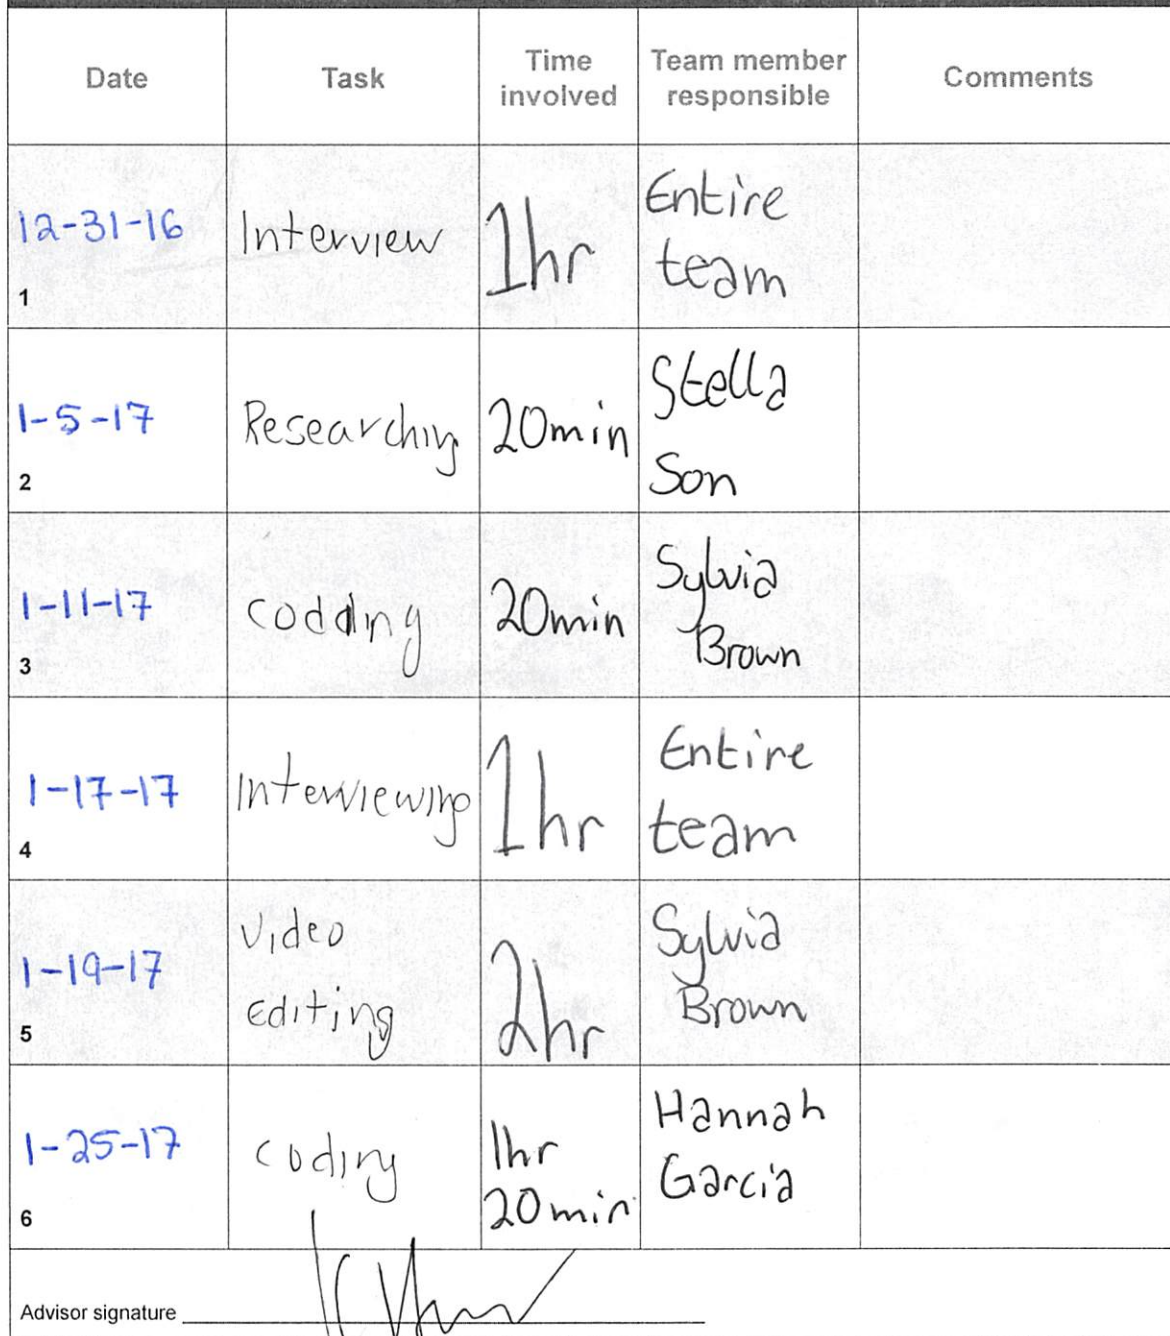 Date Task Time involved Team member responsible Comments
12-31-16 Interview 1hr Entire team
1
1-5-17 Researching 20min Stella Son
2
1-11-17 codding 20min Sylvia Brown
3
1-17-17 Interviewing 1hr Entire team
4
1-19-17 video editing 2hr Sylvia Brown
5
1-25-17 coding 1hr 20min Hannah Garcia
6
Advisor signature